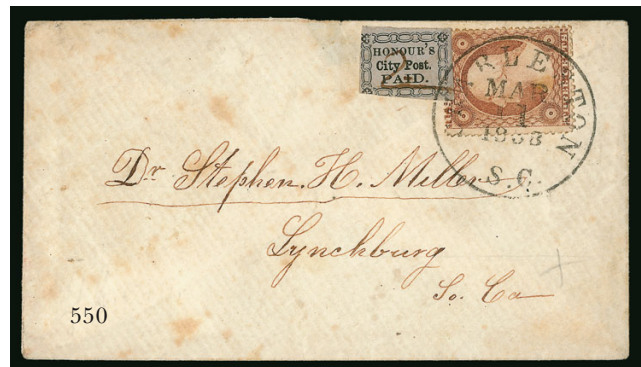 HONOUR'S
City Post.
PAID.
2
CHARLESTON
MAR
11
S.C.
Dr Stephen. H. Miller
Lynchburg
So. Ca
550